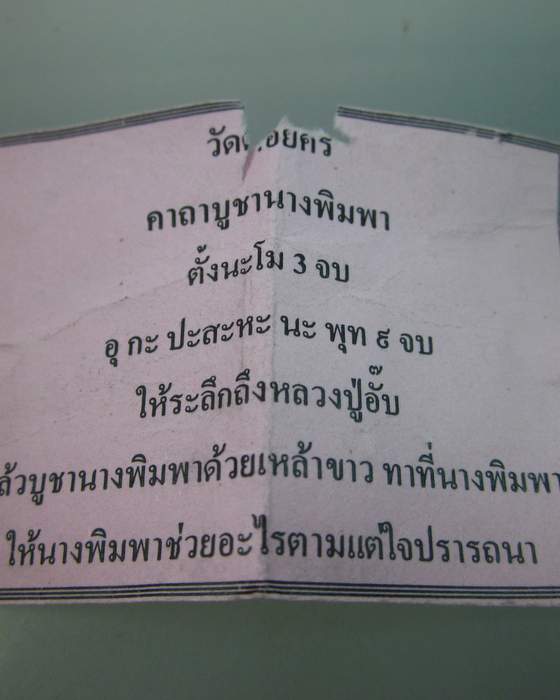 คาถาบูชานางพิมพา
ตั้งนะโม 3 จบ
อุ กะ ปะสะหะ นะ พุท ๙ จบ
ให้ระลึกถึงหลวงปู่อั๊บ
บูชานางพิมพาด้วยเหล้าขาว ทาที่นางพิมพา
ให้นางพิมพาช่วยอะไรตามแต่ใจปรารถนา